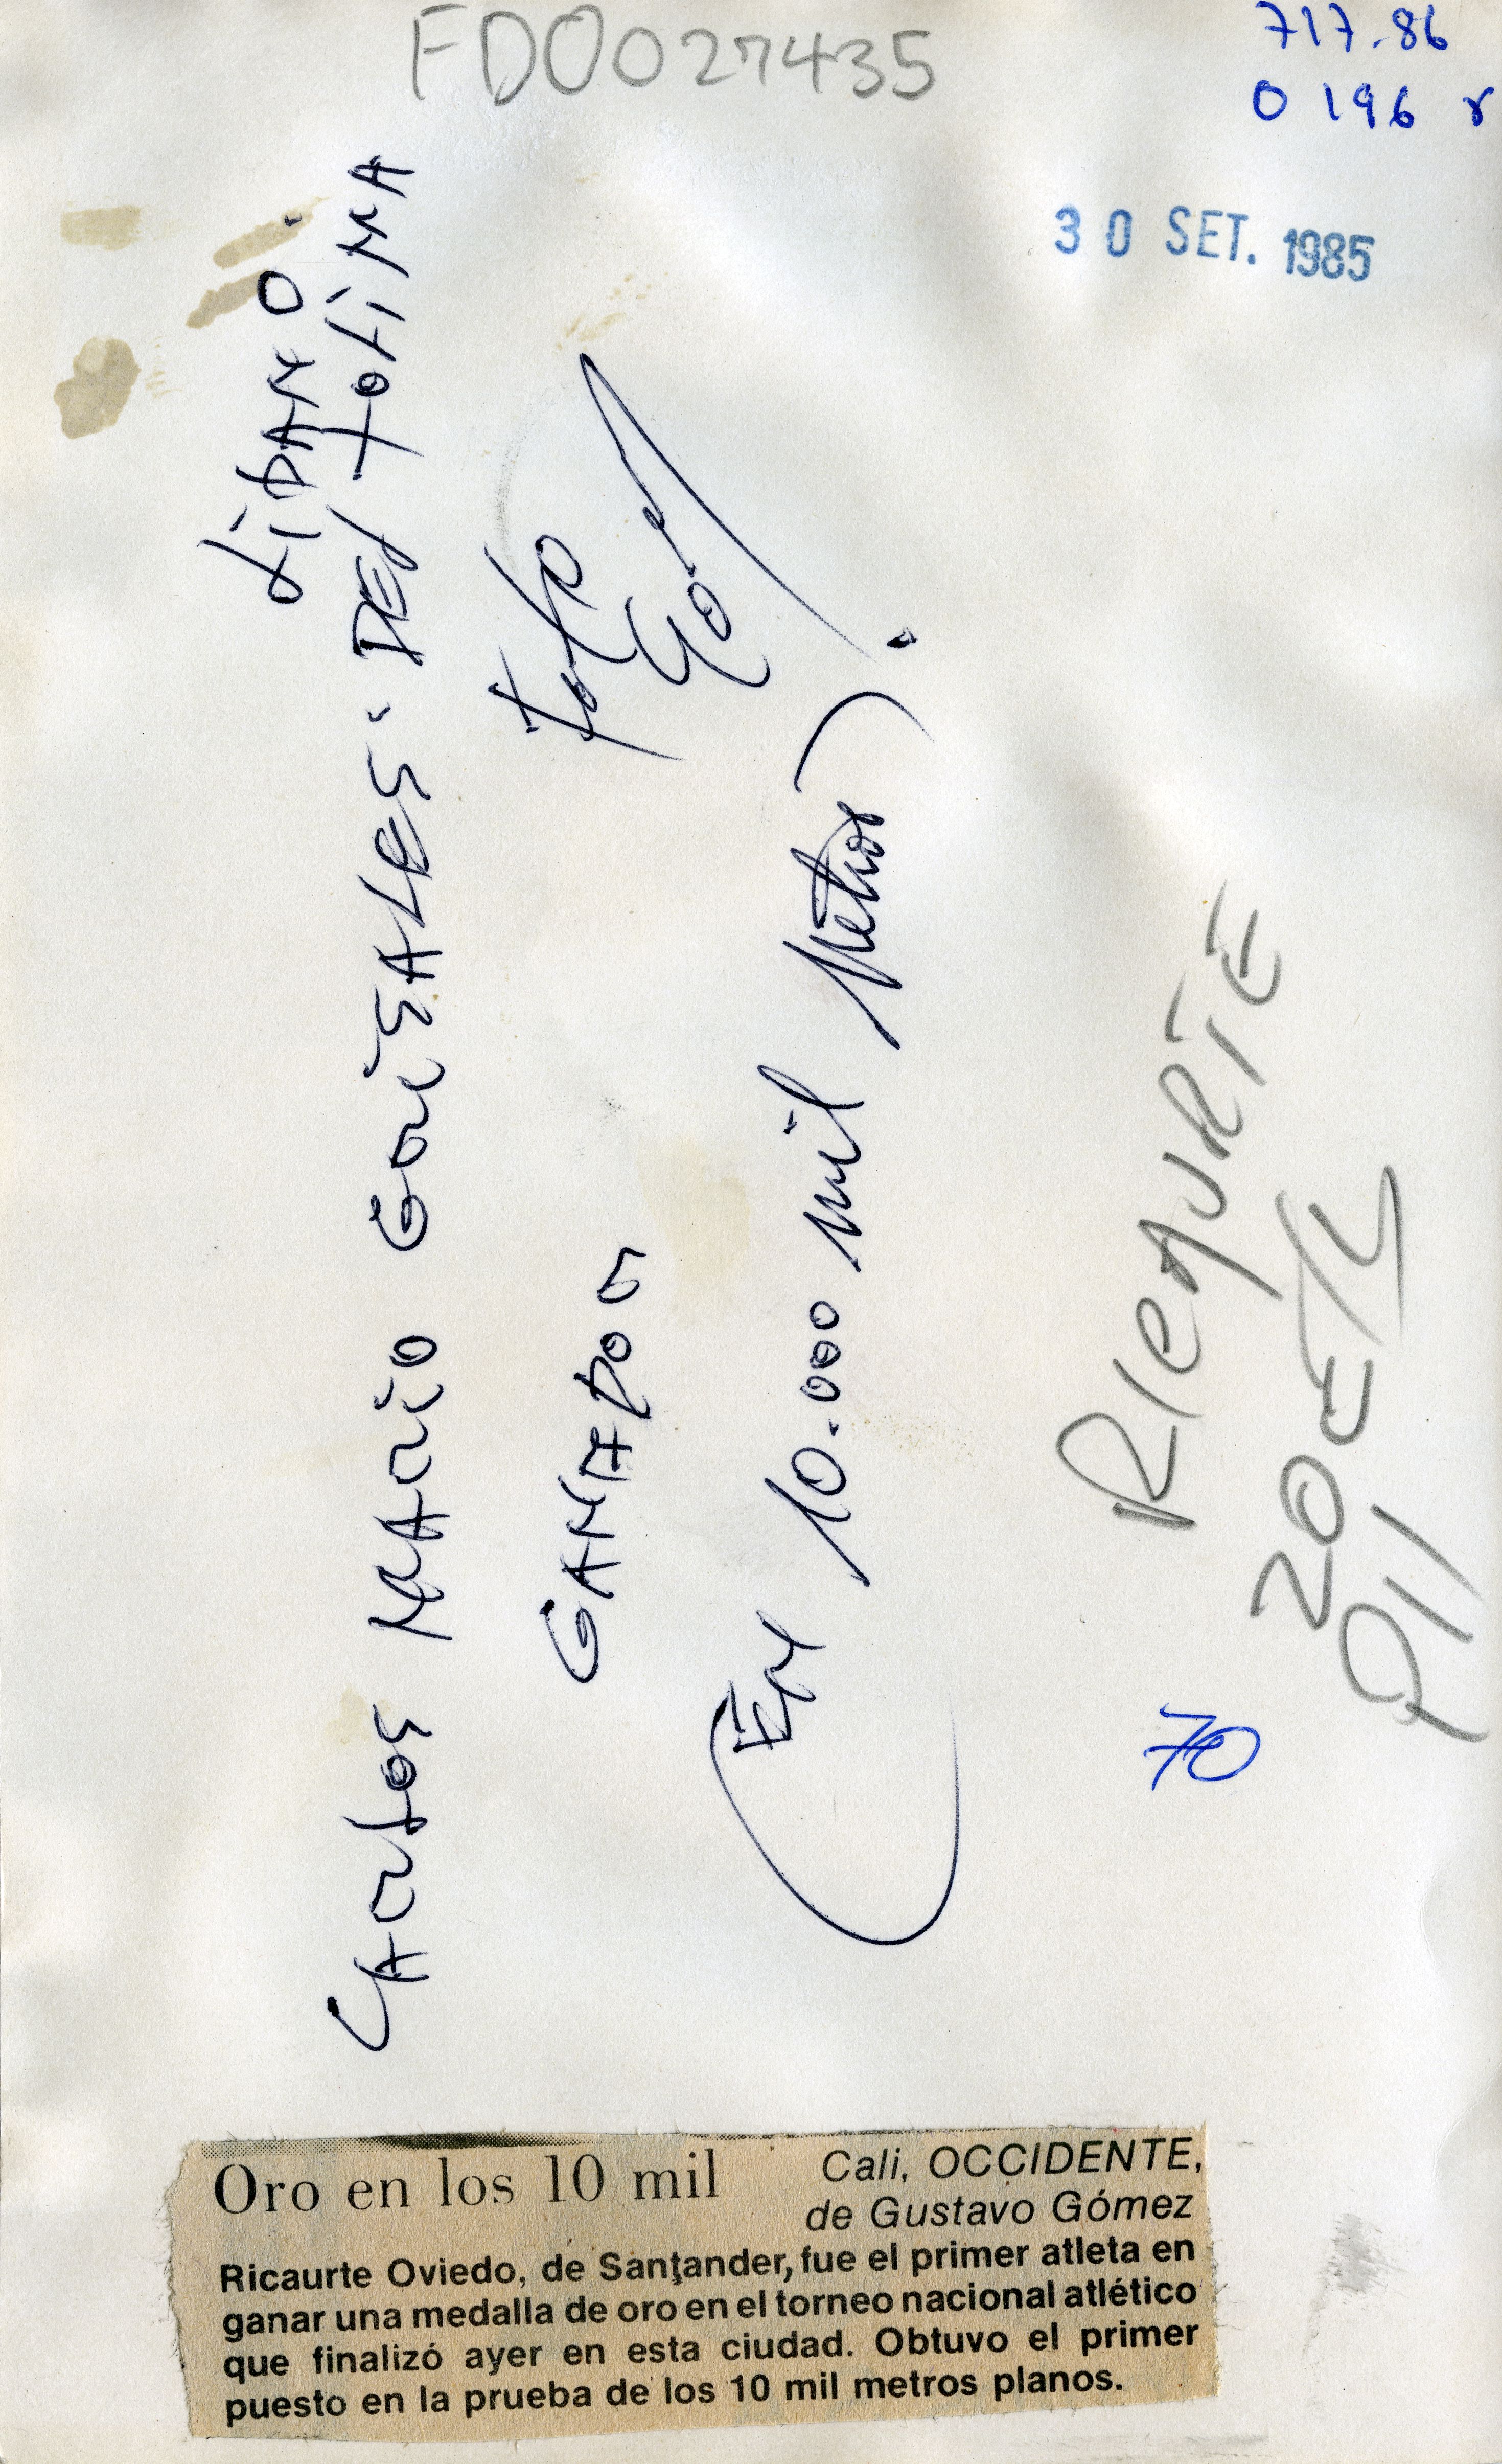 FD0027435
717-86
0196 r
30 SET. 1985
LiBANO.
CARLOS MARIO GRiSALES. DEL TOLiMA
Foto
GANADOR
EN 10.000 mil Metros.
RICAURTE
20 E/4
P11
70
Oro en los 10 mil
Cali, OCCIDENTE,
de Gustavo Gómez
Ricaurte Oviedo, de Santander, fue el primer atleta en
ganar una medalla de oro en el torneo nacional atlético
que finalizó ayer en esta ciudad. Obtuvo el primer
puesto en la prueba de los 10 mil metros planos.